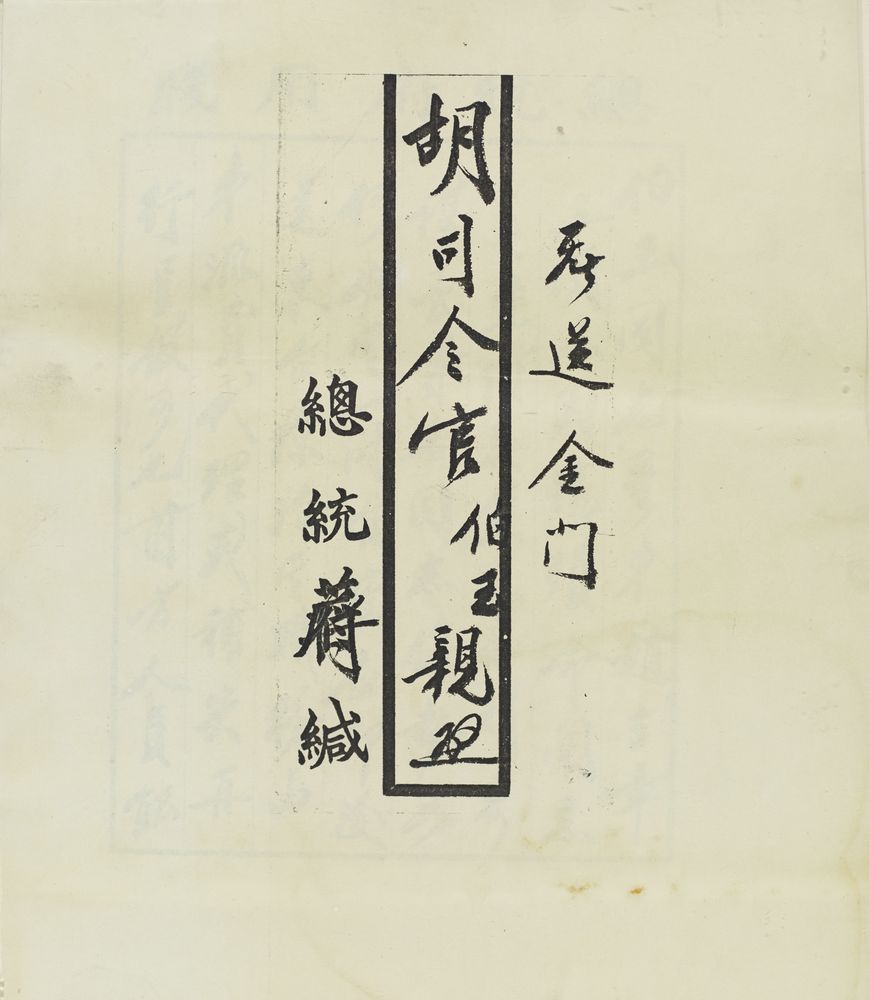 送 金門
胡司令官伯玉親啟
總統蔣緘